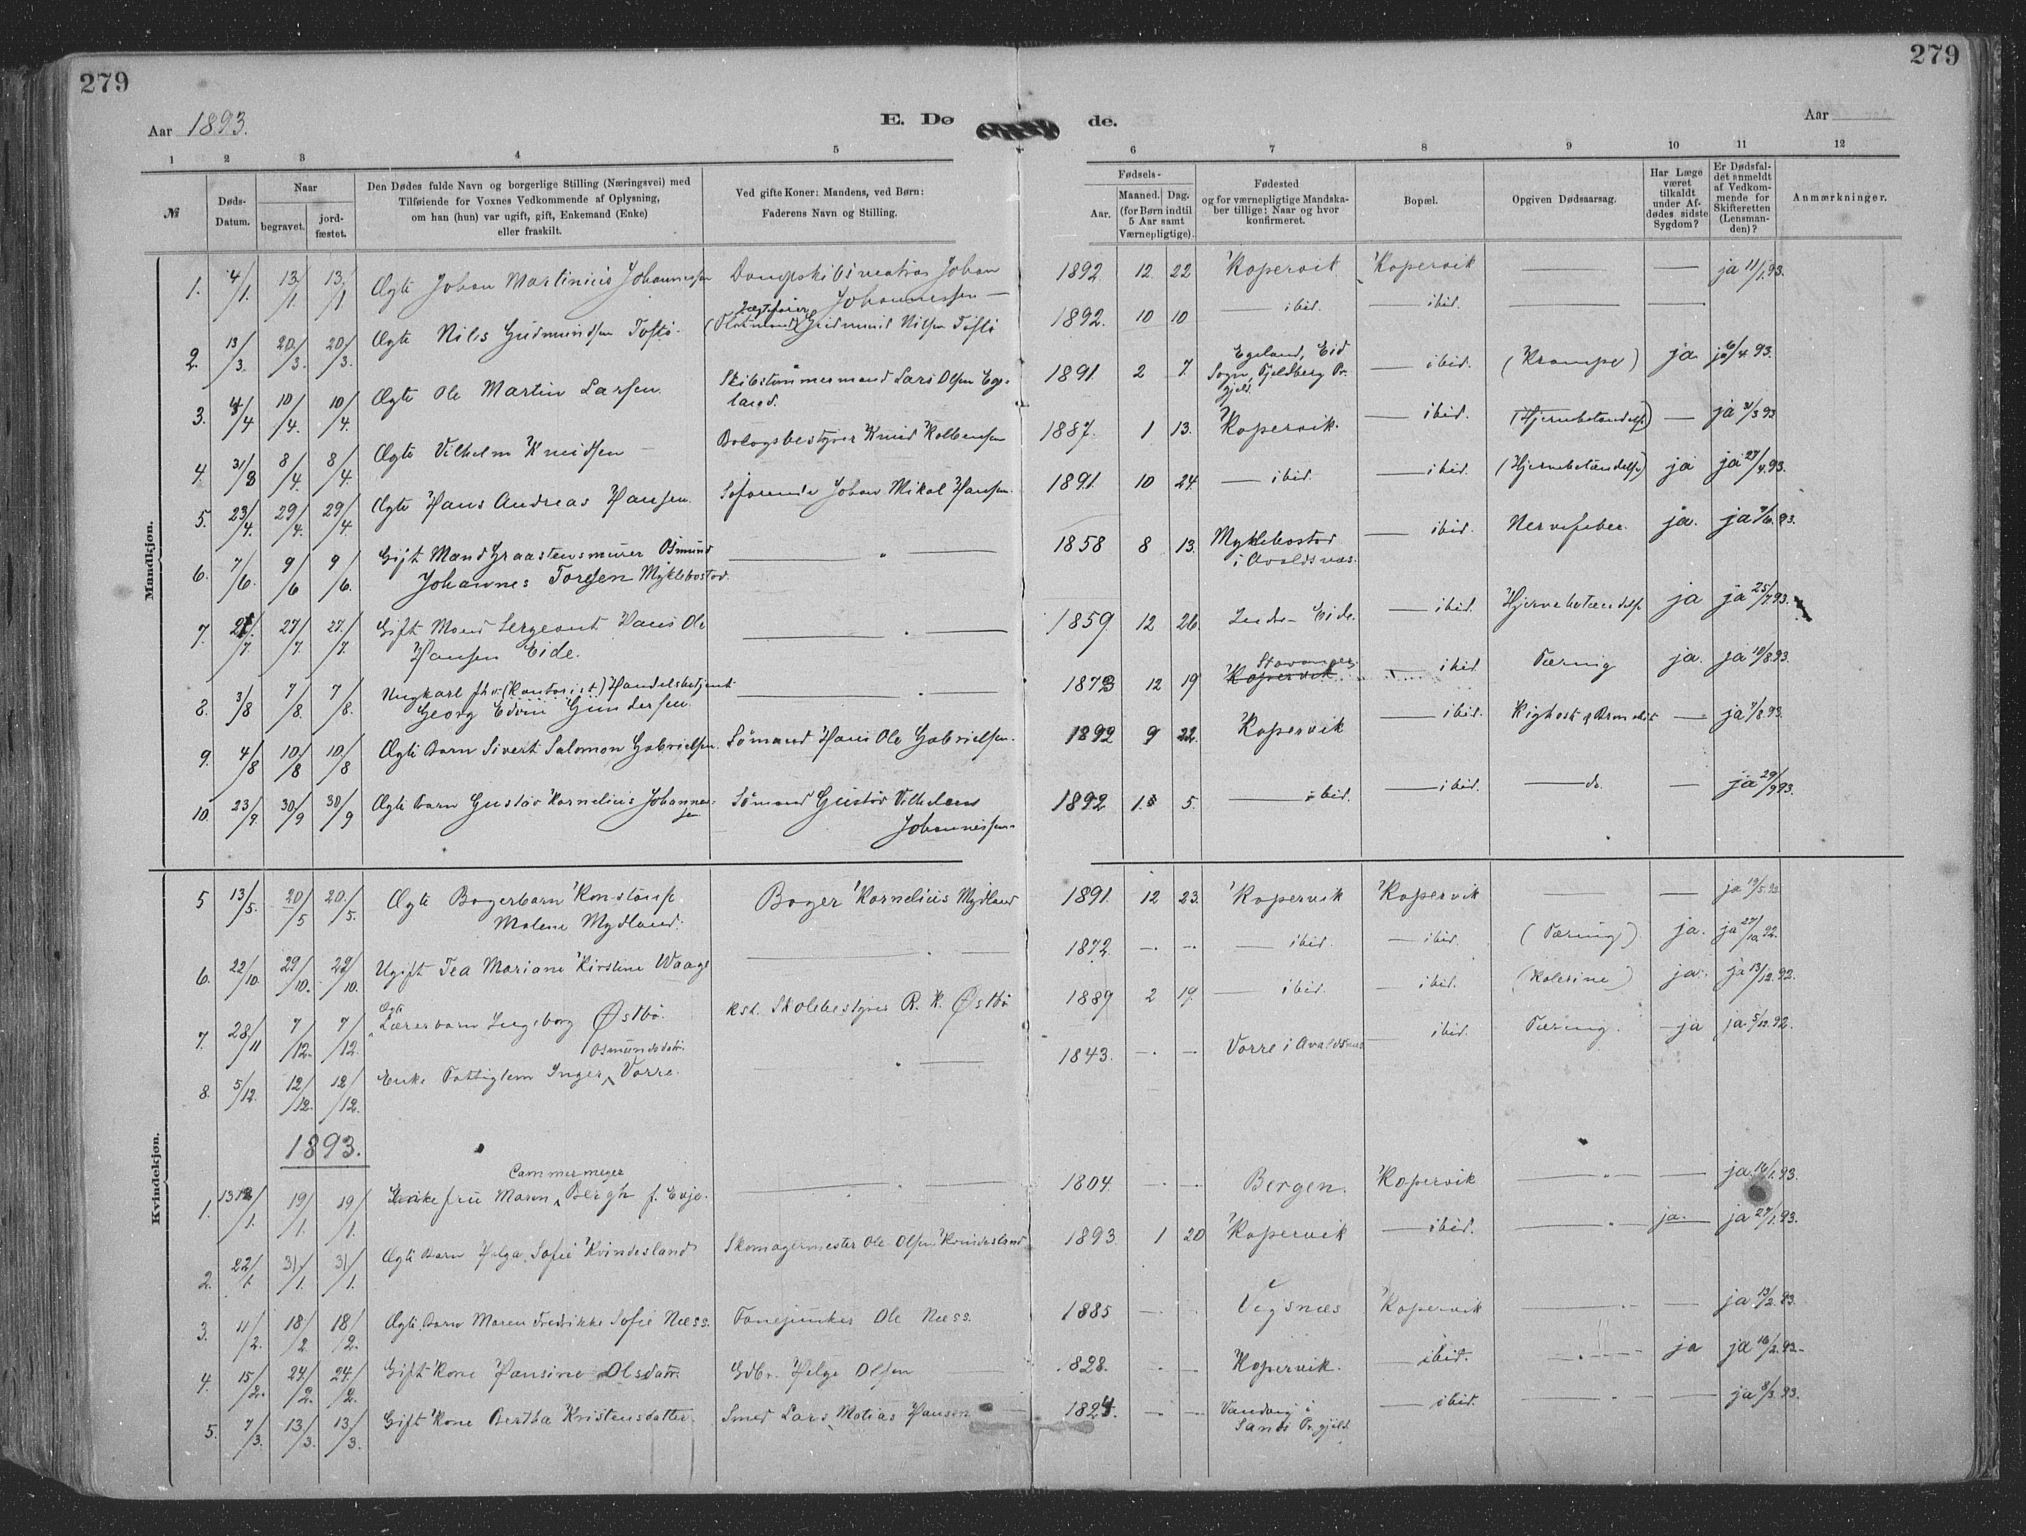 279
279
Aar 1893.
E. Dø de.
Aar
1 2 3 4 5 6 7 8 9 10 11 12
№
Døds-Datum.
Naar
begravet.
jord-fæstet.
Den Dødes fulde Navn og borgerlige Stilling (Næringsvei) med
Tilføiende for Voxnes Vedkommende af Oplysning,
om han (hun) var ugift, gift, Enkemand (Enke)
eller fraskilt.
Ved gifte Koner: Mandens, ved Børn:
Faderens Navn og Stilling.
Fødsels-
Aar.
Maaned. Dag.
(for Børn indtil
5 Aar samt
Værnepligtige).
Fødested
og for værnepligtige Mandska-
ber tillige: Naar og hvor
konfirmeret.
Bopæl.
Opgiven Dødsaarsag.
Har Læge
været
tilkaldt
under Af-
dødes sidste
Sygdom?
Er Dødsfal-
det anmeldt
af Vedkom-
mende for
Skifteretten
(Lensman-
den)?
Anmærkninger.
Mandkjøn.
1. 4/1. 13/1 13/1 Ægte Johan Martinius Johannessen Dampskibsmatros Johan Johannessen 1892 12 22 Kopervik Kopervik — — ja 11/1.93.
2. 13/3. 20/3. 20/3. Ægte Nils Gudmundsen Toftø. Gudmund Nilsen Toftø 1892. 10 10 — ibid. — ibid.
3. 4/4 10/4. 10/4. Ægte Ole Martin Larsen. Skibstømmermand Lars Olsen Ege-
land. 1891. 2 7. Egeland, Eid
Sogn, Fjeldberg Pr.
gjeld. — ibid. (Krampe) ja. ja 6/4 93.
4. 31/3 8/4. 8/4. Ægte Vilhelm Knudsen — Bolagsbestyrer Knud Kolbensen 1887. 1 13. Kopervik. — ibid. (Hjernebetændelse) — ja 93
5. 23/4. 29/4. 29/4. Ægte Hans Andreas Hansen. Søfarende Johan Mikal Hansen. 1891. 10 24. — ibid. — ibid. (Hjernebetændelse) ja ja 27/4.93.
6. 7/6. 9/6 9/6. Gift Mand Graastensmurer Osmund
Johannes Torgsen Myklebostad. 1858 8 13. Myklebostad
i Avaldsnæs. — ibid. Nervefeber. ja. ja 93.
7. 27/7. 27/7. Gift Mand Sergeant Hans Ole
Hansen Eide. 1859 12 26. Eide. — ibid. Hjernebetændelse ja ja 25/7.93.
8. 3/8 7/8. 7/8. Ungkarl fhv. (Kontorist) Handelsbetjent
Georg Edvin Gundersen. 1873 12 19 Stavanger.
Kopervik ibid Tæring ja. ja 10/8 93.
9. 4/8 10/8 10/8 Ægte Barn Sivert Salomon Gabrielsen. Sømand Hans Ole Gabrielsen. 1892 9 22. Kopervik — ibid. — ja 7/8.93.
10. 23/9. 30/9 30/9 Ægte Barn Gustav Kornelius Johannes-
sen Sømand Gustav Vilhelm
Johannessen. 1892 5. — ibid. — ibid. — do. — ja 29/9 93.
Kvindekjøn.
5 13/5. 20/5 20/5. Ægte Bagerbarn Konstanse
Malene Mydland. Bager Kornelius Mydland 1891. 12 23. Kopervik Kopervik — — ja 19/5.92.
6. 22/10. 29/10. 29/10. Ugift Tea Mariane Kirstine Waage 1872. — — — ibid. — ibid. (Tæring) ja. ja 27/10 92.
7. 28/11 7/12. 7/12. Ægte
Lærerbarn Ingeborg Østbø. Kst. Skolebestyrer R. K. Østbø 1889 2 19. — ibid. — ibid. (Kolerine) ja. ja 13/12.92.
8. 5/12. 12/12. 12/12. Osmundsdatr.
Enke Fattiglem Inger Vorre. 1843. — — Vorre i Avaldsnæs — ibid. Tæring. — ja ja. 5/12.92.
1893.
1. 13/1. 19/1. 19/1. Cammermeyer
Enkefru Maren Bergh f. Evje. 1804 — — Bergen. Kopervik — — ja. 16/1.93.
2. 22/1. 31/1. 31/1. Ægte Barn Helga Sofie Kvindesland Skomagermester Ole Olsen Kvindesland 1893. 1 20 Kopervik — ibid. — ja. ja 27/1.93.
3. 11/2. 18/2 18/2. Ægte Barn Maren Fredrikke Sofie Næss. Fanejunker Ole Næss. 1885 — — Vigsnæs Kopervik — — ja 13/2.93.
4. 15/2. 24/2. 24/2. Gift Kone Hansine Olsdatr. Gdbr. Helge Olsen 1828. — — Kopervik. — ibid. — ja ja 16/2.93.
5. 7/3. 13/3. 13/3. Gift Kone Bertha Kristensdatter. Smed Lars Matias Hansen 1824. — — Vandvig i
Sands Pr.gjeld. — ibid. — — ja 8/3.93.